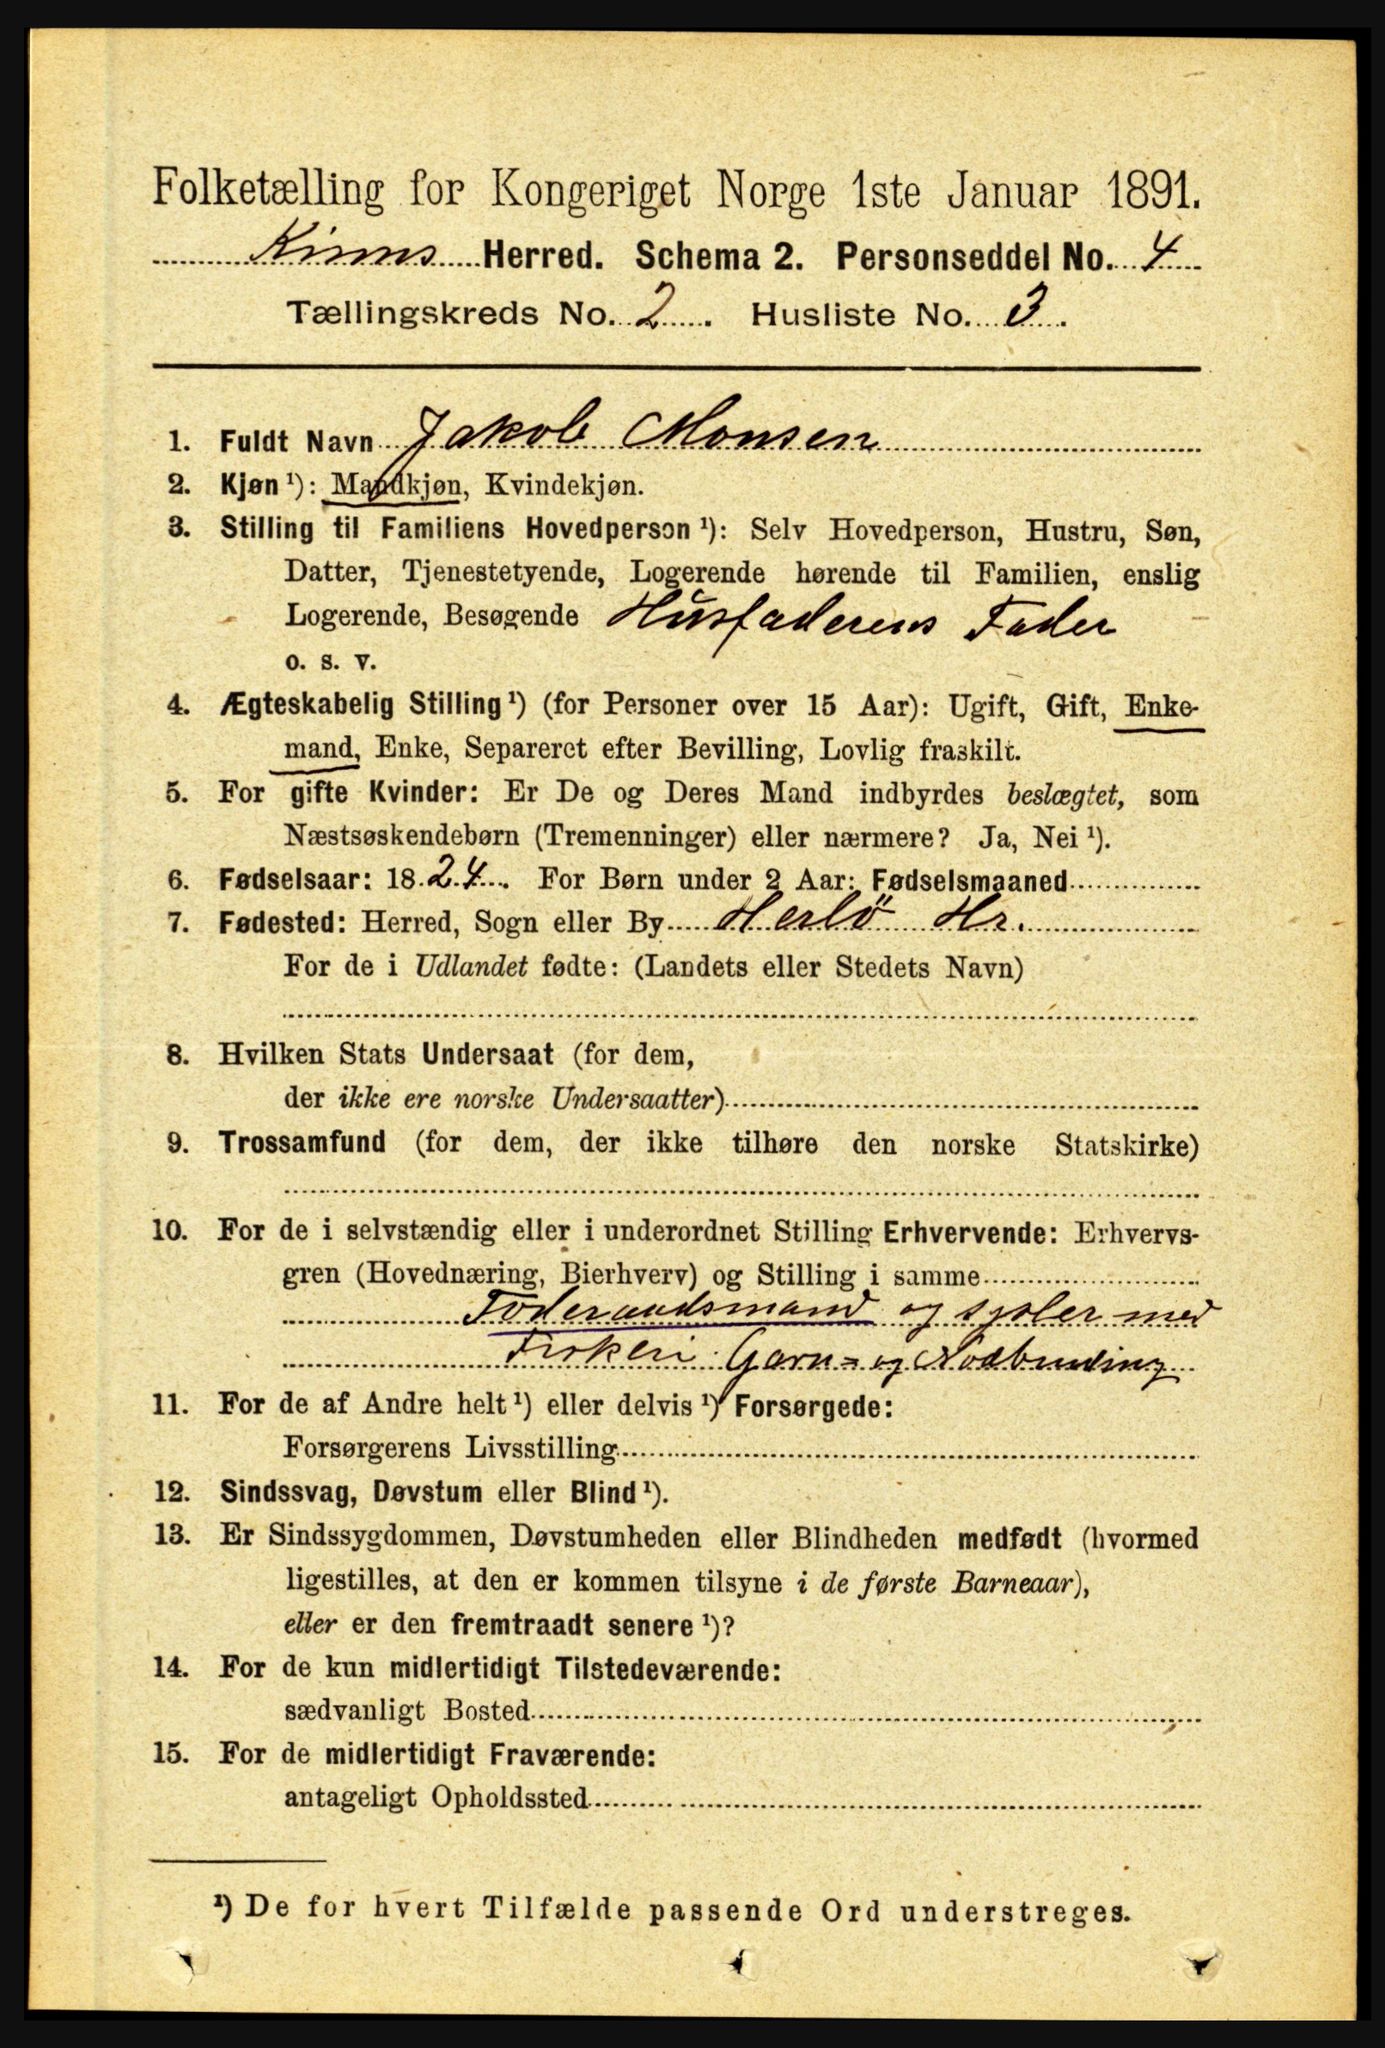 Folketælling for Kongeriget Norge 1ste Januar 1891.
Kinns Herred. Schema 2. Personseddel No. 4
Tællingskreds No. 2 . Husliste No. 3 .
1. Fuldt Navn Jakob Monsen
2. Kjøn ¹): Mandkjøn, Kvindekjøn.
3. Stilling til Familiens Hovedperson ¹): Selv Hovedperson, Hustru, Søn,
Datter, Tjenestetyende, Logerende hørende til Familien, enslig
Logerende, Besøgende Husfaderens Fader
o. s. v.
4. Ægteskabelig Stilling ¹) (for Personer over 15 Aar): Ugift, Gift, Enke-
mand, Enke, Separeret efter Bevilling, Lovlig fraskilt.
5. For gifte Kvinder: Er De og Deres Mand indbyrdes beslægtet, som
Næstsøskendebørn (Tremenninger) eller nærmere? Ja, Nei ¹).
6. Fødselsaar: 1824 . For Børn under 2 Aar: Fødselsmaaned
7. Fødested: Herred, Sogn eller By Herlö Hr.
For de i Udlandet fødte: (Landets eller Stedets Navn)
8. Hvilken Stats Undersaat (for dem,
der ikke ere norske Undersaatter)
9. Trossamfund (for dem, der ikke tilhøre den norske Statskirke)
10. For de i selvstændig eller i underordnet Stilling Erhvervende: Erhvervs-
gren (Hovednæring, Bierhverv) og Stilling i samme
Föderaadsmand og sysler med
Fiskeri Garn- og Nodbinding
11. For de af Andre helt ¹) eller delvis ¹) Forsørgede:
Forsørgerens Livsstilling
12. Sindssvag, Døvstum eller Blind ¹).
13. Er Sindssygdommen, Døvstumheden eller Blindheden medfødt (hvormed
ligestilles, at den er kommen tilsyne i de første Barneaar),
eller er den fremtraadt senere ¹)?
14. For de kun midlertidigt Tilstedeværende:
sædvanligt Bosted
15. For de midlertidigt Fraværende:
antageligt Opholdssted
¹) De for hvert Tilfælde passende Ord understreges.